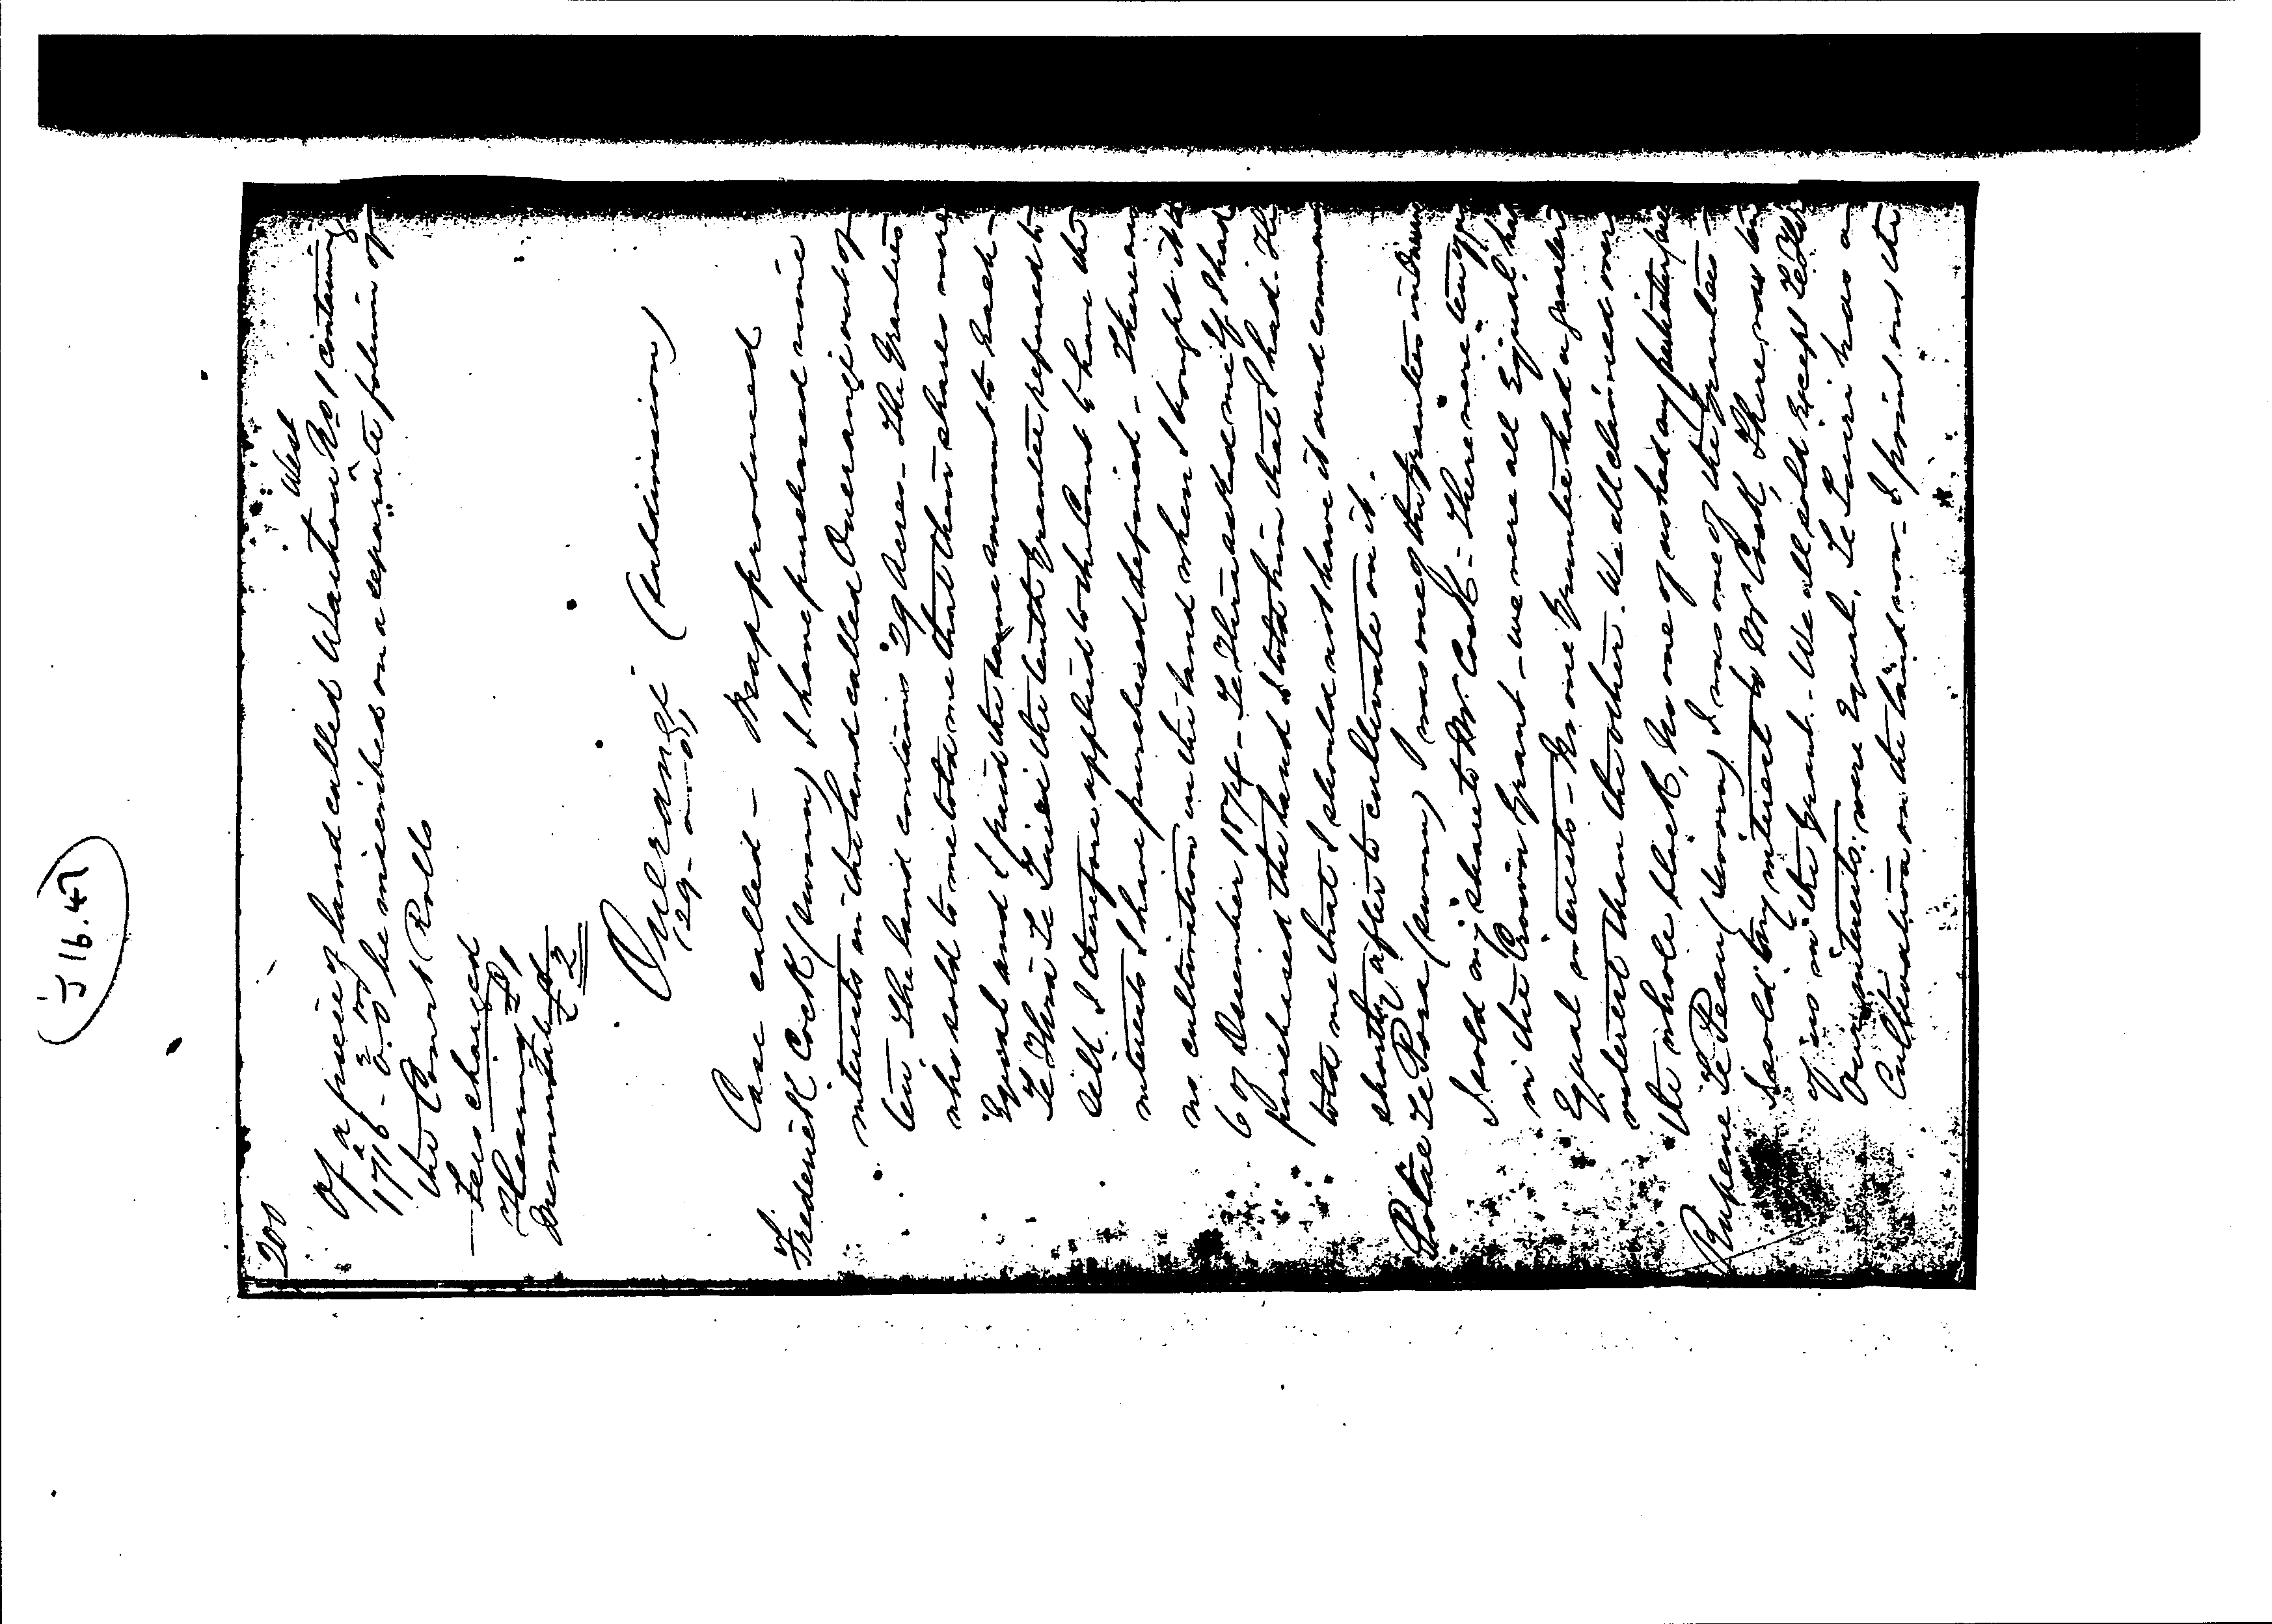 (J 16.47)
200
West
Of a piece of land called Waitkou No 1 containing
1716 a 2 r 00 p be inscribed on a separate folium of
the Court Rolls
Fees charged
Hearing £1
Memorial £1
£2
Oueranga (Subdivision)
(29 - 0 - 0)
Case called - Map produced
Frederick Cock (sworn) I have purchased nine
interests in the land called Oueranga out of
ten The land contains 29 Acres - The Grantees
who sold to me told me that their shares were
Equal and I paid the same amount to Each -
Te Thira Te the tenth Grantee refused to
sell. I therefore applied to the Court to have the
interests I have purchased defined - There was
no cultivation on the land when I bought it
6 of December 1874 - Te Thira asked me if I had
purchased the land & I told him that I had. He
told me that I should not have it and commenced
shortly after to cultivate on it.
Potae Te Pora (sworn) I was one of the Grantees in
I sold my share to Mr. Cock - There were ten of us
in the Crown Grant - we were all Equal, had
Equal interests - No one Grantee had a greater
interest than the other. We all claimed over
the whole block, No one of us had any particular
Rupene Te Peau (sworn) I was one of the Grantees -
I sold my interest to Mr Cock, There was ten
of us in the Grant. - We all sold Except Te
Our interests were Equal. Te has a
Cultivation on the land now - I point out the